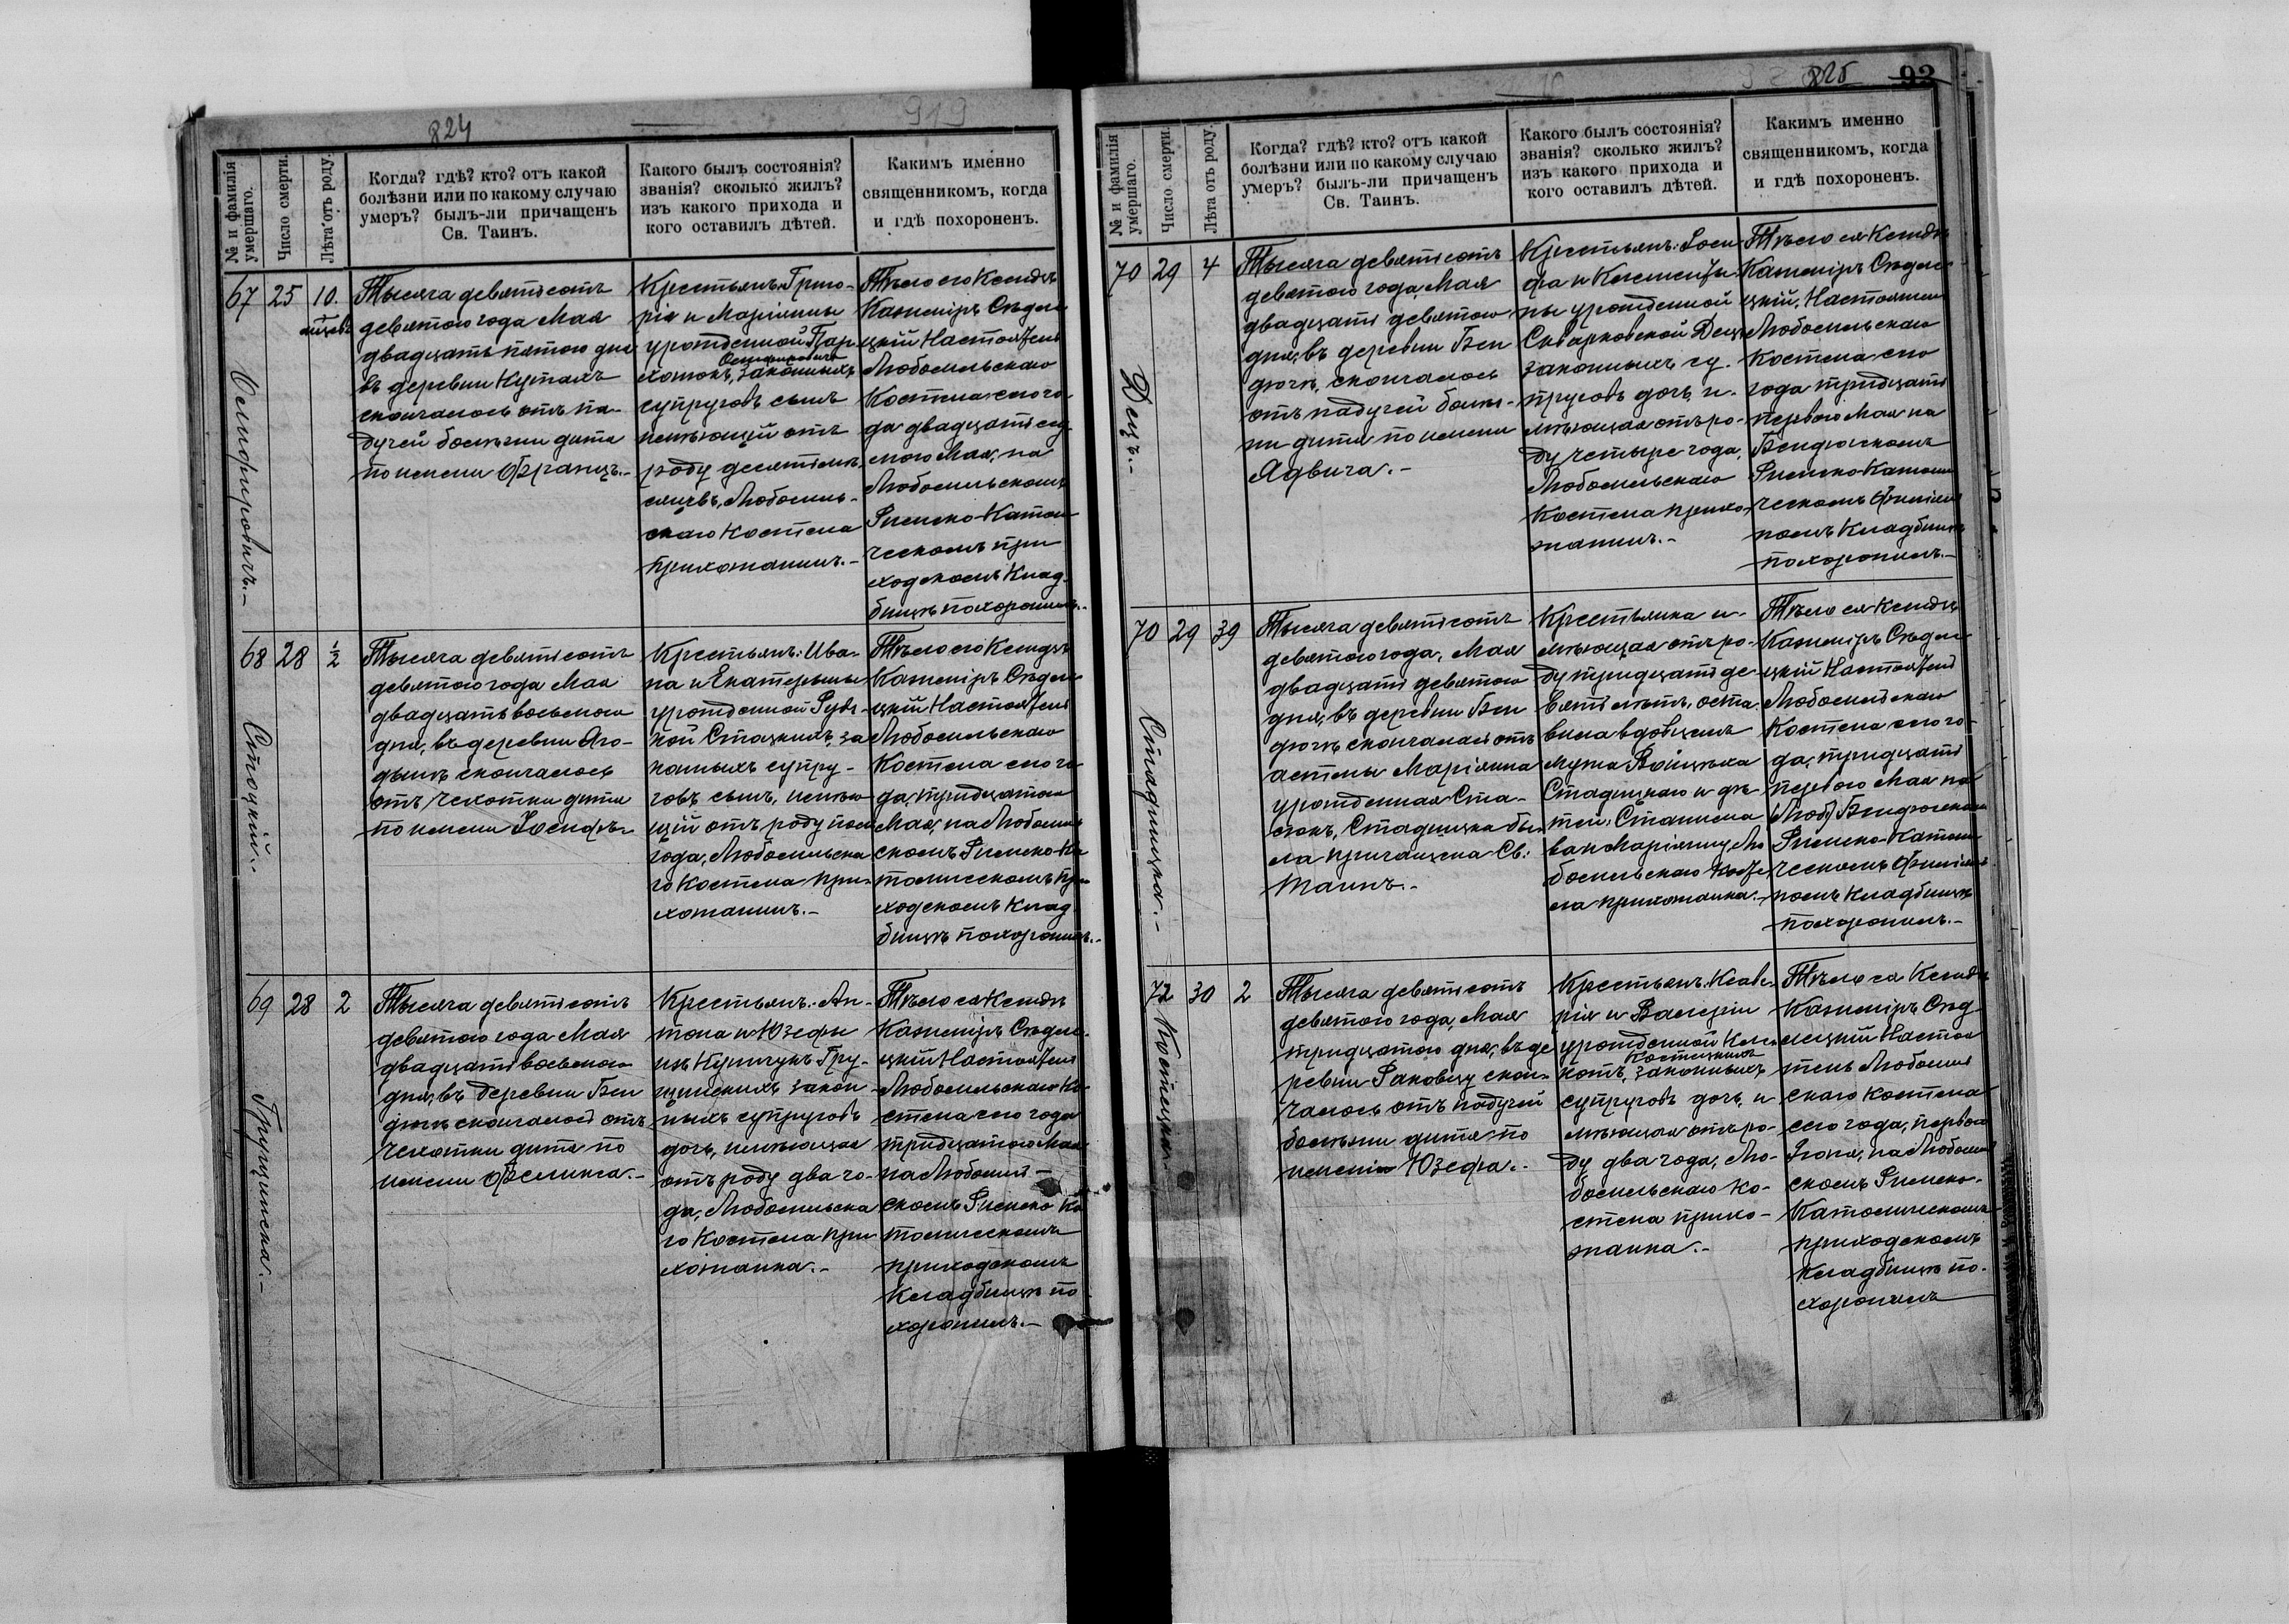 824
919
№ и фамилія умершаго.
Число смерти.
Лѣта отъ роду.
Когда? гдѣ? кто? отъ какой
болѣзни или по какому случаю
умеръ? былъ-ли причащенъ
Св. Таинъ.
Какого былъ состоянія?
званія? сколько жилъ?
изъ какого прихода и
кого оставилъ дѣтей.
Какимъ именно
священникомъ, когда
и гдѣ похороненъ.
67
25
10.
Тысяча девятьсотъ
девятого года Мая
двадцать пятого дня
въ деревни Кутахъ
скончалось отъ па-
дучей болѣзни дитя
по имени Францъ.-
Крестьянъ: Григо-
рія и Маріянны
урожденной Пар-
хомюкъ, законныхъ
супруговъ сынъ
имѣющій отъ
роду десять мѣ-
сяцевъ, Любомль-
скаго Костела
прихожанинъ.-
Тѣло его Ксендзъ
Казиміръ
Настоятель
Любомльскаго
Костела сего го-
да двадцать седь-
мого Мая, на
Любомльскомъ
Римско-Католи
ческомъ при
ходскомъ Клад-
бищѣ похоронилъ.-
68
28
½
Стоцкій.-
Тысяча девятьсотъ
девятого года Мая
двадцать восьмого
дня, въ деревни Яго-
дынѣ скончалось
отъ чехотки дитя
по имени Іосифъ-
Крестьянъ: Ива-
на и Екатерины
урожденной Руд-
кой Стоцкихъ, за
конныхъ супру-
говъ сынъ, имѣю-
щій отъ роду пол
года, Любомльска
го Костела при-
хожанинъ.-
Тѣло его Ксендзъ
Казиміръ
Настоятель
Любомльскаго
Костела сего го-
да, тридцатого
Мая, на Любомль
скомъ Римско-Ка
толическомъ при
ходскомъ Клад
бищѣ похоронилъ.-
69
28
2
Грущинска.-
Тысяча девятьсотъ
девятого года Мая
двадцать восьмого
дня, въ деревни Бин
дюгѣ скончалось отъ
чехотки дитя по
имени Фелинка.-
Крестьянъ: Ан-
тона и Юзефы
изъ Купчукъ Гру-
щинскихъ закон-
ныхъ супруговъ
дочь, имѣющая
отъ роду два го-
да, Любомльска
го Костела при
хожанка.-
Тѣло ея Ксендзъ
Казиміръ
Настоятель
Любомльскаго Ко-
стела сего года
тридцатого Мая
на Любомль-
скомъ Римско Ка
толическомъ
приходскомъ
Кладбищѣ по
хоронилъ.-
825
93
№ и фамилія умершаго.
Число смерти.
Лѣта отъ роду.
Когда? гдѣ? кто? отъ какой
болѣзни или по какому случаю
умеръ? былъ-ли причащенъ
Св. Таинъ.
Какого былъ состоянія?
званія? сколько жилъ?
изъ какого прихода и
кого оставилъ дѣтей.
Какимъ именно
священникомъ, когда
и гдѣ похороненъ.
70
29
4
Децъ.-
Тысяча девятьсотъ
девятого года, Мая
двадцать девятого
дня, въ деревни Бин
дюгѣ, скончалось
отъ падучей болѣз-
ни дитя по имени
Ядвига.-
Крестьянъ: Іоси-
фа и Клементи-
ны урожденной
Скварковской Децъ
законныхъ су-
пруговъ дочь, и-
мѣющая отъ ро-
ду четыре года,
Любомльскаго
Костела прихо-
жанинъ.-
Тѣло ея Ксендзъ
Казиміръ
Настоятель
Любомльскаго
Костела сего
года тридцать
перваго Мая на
Биндюгскомъ
Римско-Католи
ческомъ Филіаль
номъ Кладбищѣ
похоронилъ.-
70
29
39
Стадницка.-
Тысяча девятьсотъ
девятого года, Мая
двадцать девятого
дня, въ деревни Бин
дюгѣ скончалась отъ
астмы Маріянна
урожденная Ста-
сюкъ, Стадницка бы-
ла причащена Св:
Таинъ.-
Крестьянка и-
мѣющая отъ ро-
ду тридцать де-
вять лѣтъ, оста
вила вдовцемъ
мужа Войцѣха
Стадницкаго и дѣ-
тей: Станисла
ва и Маріянну, Лю
бомльскаго Косте
ла прихожанка.-
Тѣло ея Ксендзъ
Казиміръ
Настоятель
Любомльскаго
Костела сего го-
да, тридцать
перваго Мая на
Биндюгскомъ
Римско-Католи
ческомъ Филіаль
номъ Кладбищѣ
похоронилъ.-
72
30
2
Костецка.-
Тысяча девятьсотъ
девятого года, Мая
тридцатого дня, въ де
ревни Раковцу скон-
чалось отъ падучей
болѣзни дитя по
имени Юзефа.-
Крестьянъ: Ксаве-
рія и Валеріи
урожденной
Костецкихъ
законныхъ
супруговъ дочь, и-
мѣющая отъ ро-
ду два года, Лю-
бомльскаго Ко-
стела прихо-
жанка.-
Тѣло ея Ксендзъ
Казиміръ
Настоя
тель Любомль
скаго Костела
сего года, перваго
Іюня, на Любомль
скомъ Римско-
Католическомъ
приходскомъ
Кладбищѣ по-
хоронилъ